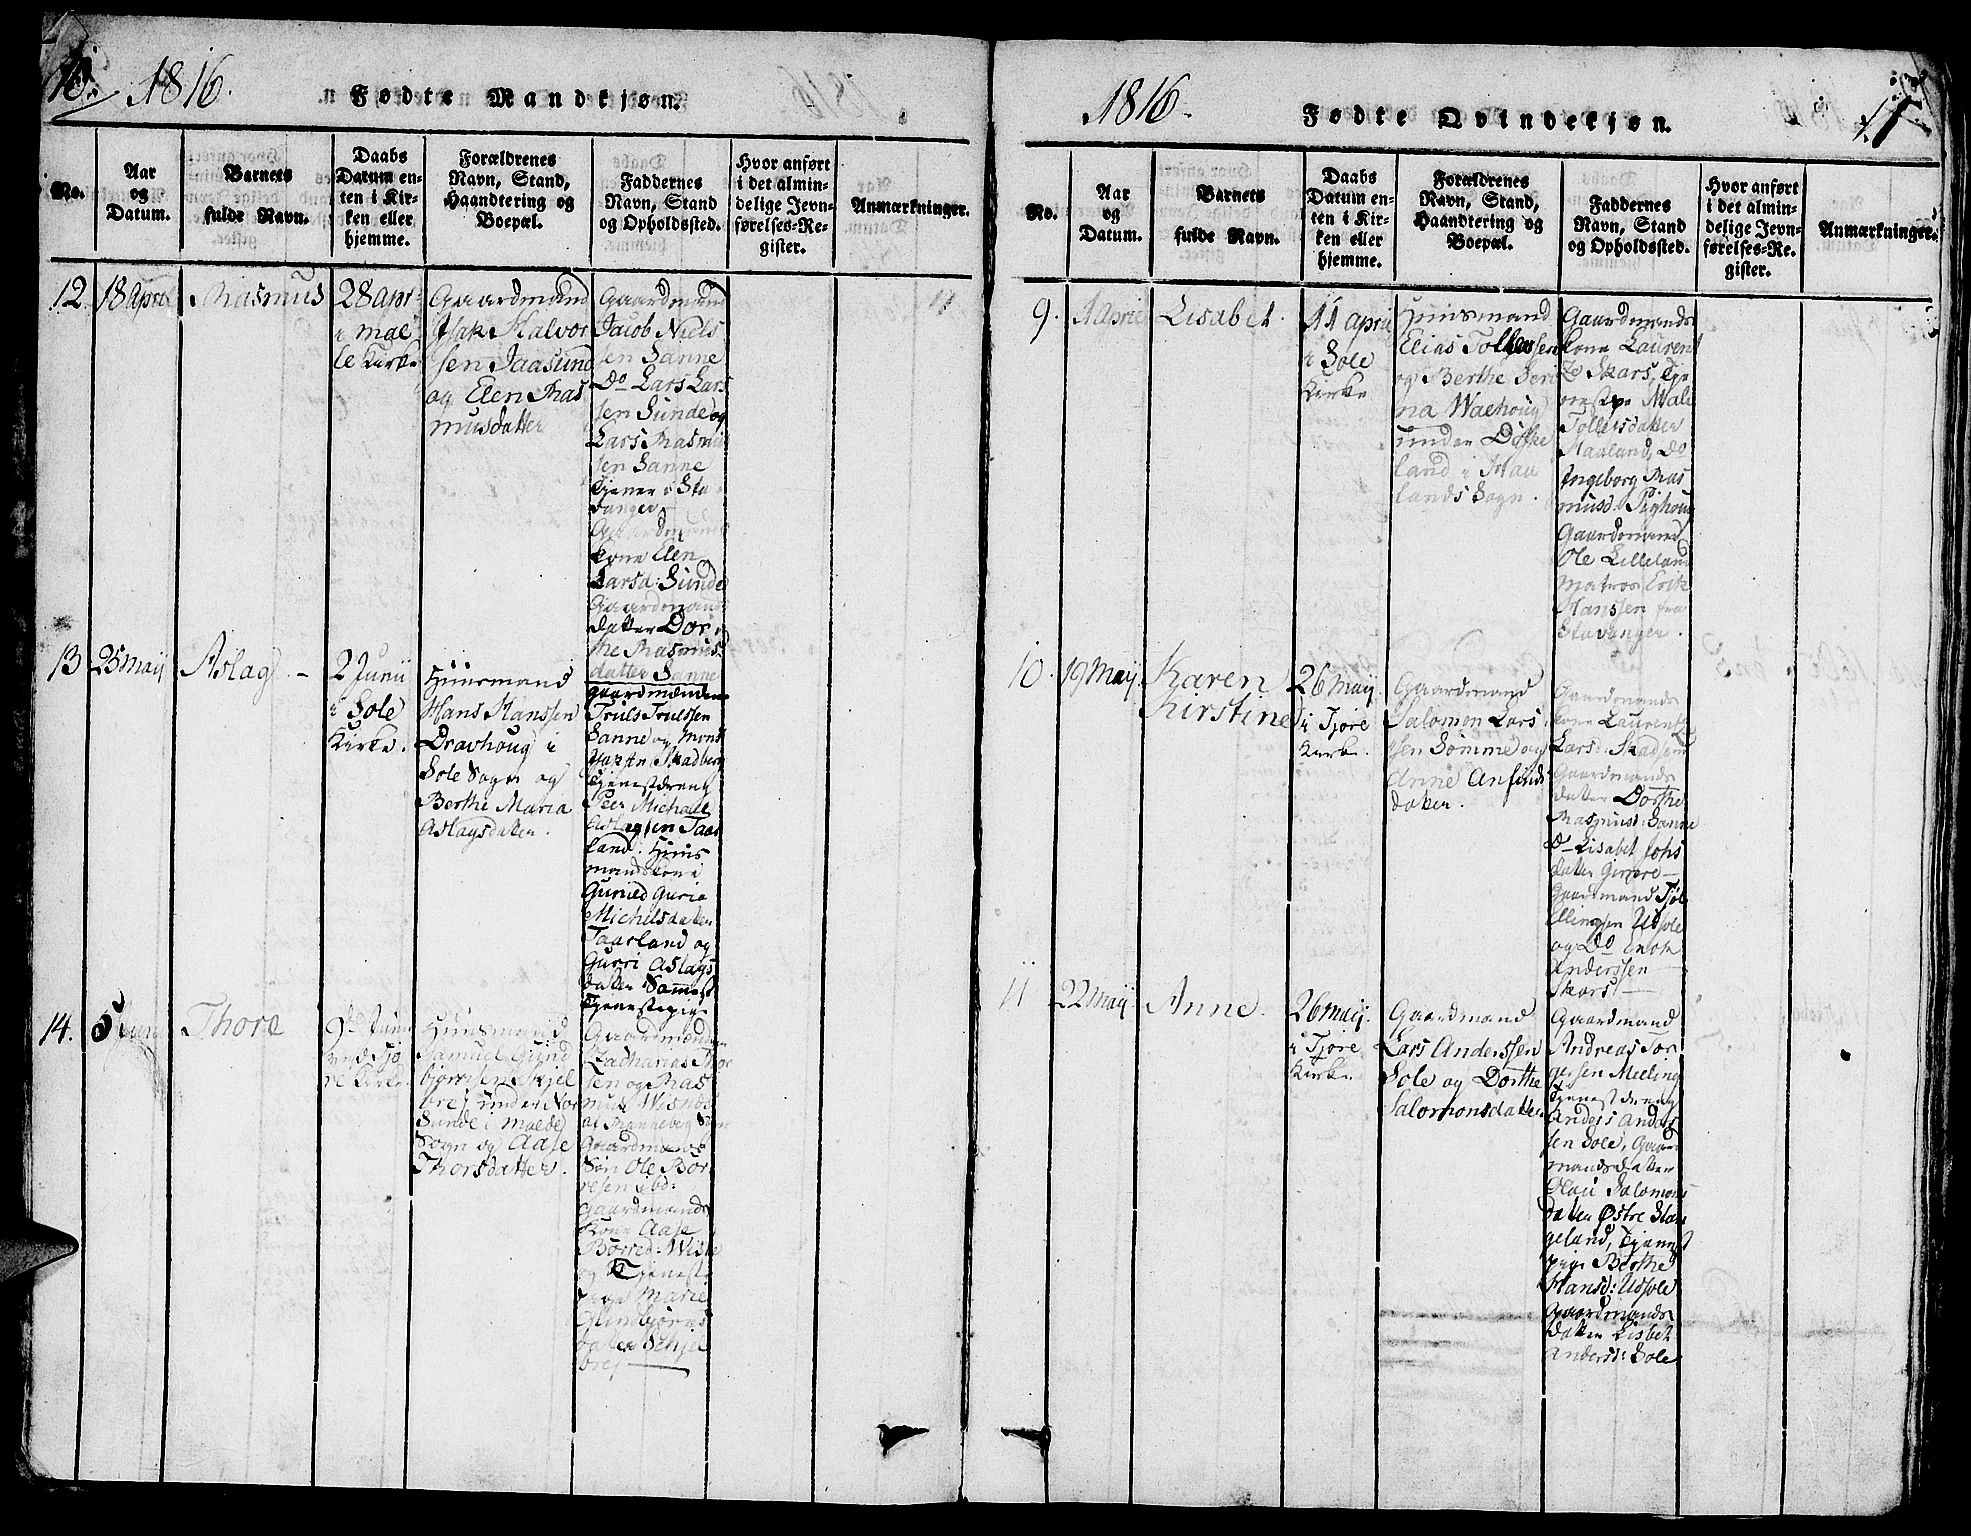 10.
1816.
Fødte Mandkjøn.
No.
Aar
og
Datum.
Barnets
fulde Navn.
Daabs
Datum en-
ten i Kir-
ken eller
hjemme.
Forældrenes
Navn, Stand,
Haandtering og
Boepæl.
Faddernes
Navn, Stand
og Opholdssted.
Hvor anført
i det almin-
delige Jevn-
førelses-Re-
gister.
Anmærkninger.
12.
18 april
Rasmus
28 apr:
i mal
le Kirke
Gaardmand
Isak Halvor
sen Jaasund
og Elen Ras
musdatter
Gaardmænd
Jacob Niels
sen Sanne
Do Lars Lars
sen Sunde og
Lars Rasmus
sen Sanne
Tjener i Sta
vanger
Gaardmands
kone Elen
Larsd: Sunde
Gaardmands
datter Dor
the Rasmus
datter Sanne
13
25 May
Aslag
2 Junii
i Sole
Kirke.
Huusmand
Hans Hanssen
Dravhoug i
Sole Sogn og
Berthe Maria
Aslagsdatter.
Gaardmændene
Truls Trulssen
Sanne og
Skadberg
Tjenestdreng
Peer Michael
Aslagsen Taar
land. Huus
mandskone
Gunild Guria
Michelsdatter
Taarland og
Gurri Aslags
datter
Tjenestepige
14.
5 Juni
Thore
9de Junii
ved Tjo
re Kirke
Huusmand
Samuel Gund
bjørnsen Skjel
brej under Nor
Sunde i Malde
Sogn og Aase
Thorsdatter.
Gaardmændene
Zacharias Thor
sen og Ras
mus Wisnes
Gaardmands
Søn Ole Bor
resen ibd:
Gaardmands
Kone Aase
Borred: Wisne
og Tjeneste
pige Marie
Gundbjørns
datter Schjel
brej
1816.
Fødte Qvindekjøn.
17
No.
Aar
og
Datum.
Barnets
fulde Navn.
Daabs
Datum en-
ten i Kir-
ken eller
hjemme.
Forældrenes
Navn, Stand,
Haandtering og
Boepæl.
Faddernes
Navn, Stand
og Opholdssted.
Hvor anført
i det almin-
delige Jevn-
førelses-Re-
gister.
Anmærkninger.
9.
1 April
Lisabet.
11 april
i Sole
Kirke
Huusmand
Elias Tollefsen
og Berthe Seri
na Waehoug
under Dÿske
land i Haa
lands Sogn.
Gaardmands
kone Laurent
Ze Skars, Tje
nestpe Male
Tollefsdatter
Haaland, Do
Ingeborg Ras
musd.
Gaardmand
Ole Lilleland
matros Erik
Hanssen fra
Stavanger.
10.
19 May.
Karen
Kirstine
26 May.
i Tjore
Kirke.
Gaardmand
Salomon Lars
sen Sømme og
Anne Anfinds
datter.
Gaardmands
kone Laurentze
Larsd:
Gaardmands
datter Dorthe
Rasmusd: Sanne
Do Lisabet Johs
datter Gimre
Gaardmand
Ellingsen Udsole
og Do Enok
Anderssen
Skars
11
22 May
Anne.
26 May.
i Tjore
Kirke
Gaardmand
Lars Anderssen
Sole og Dorthe
Salomonsdatter.
Gaardmand
Andreas Tor
gersen Meling
Tjenestdreng
Anders Anders
sen Sole, Gaar
mandsdatter
Olau Salomons
datter Østre Stan
geland, Tjenest
pige Berthe
Hansd: Udsole
Gaardmands
datter Lisbet
Andersd: Sole